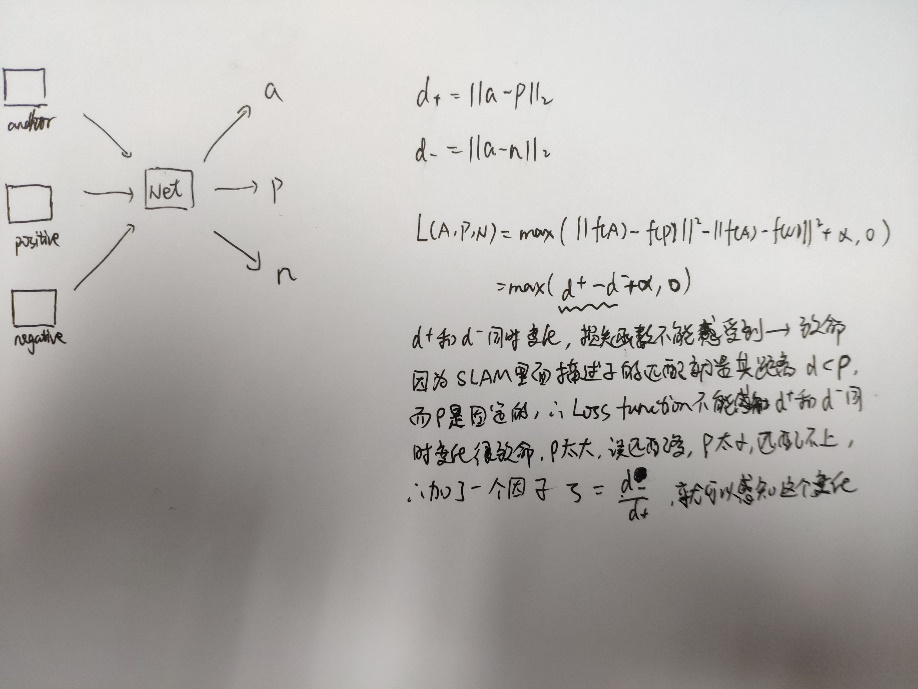 anchor
positive
negative
Net
a
p
n
d₊ = ||a-p||₂
d₋ = ||a-n||₂
L(A,P,N) = max(||f(A)-f(P)||²-||f(A)-f(N)||²+α,0)
=max(d⁺-d⁻+α,0)
d⁺和d⁻同时变化,损失函数不能感受到→致命
因为SLAM里面描述子的匹配都是其距离d<P,
而P是固定的,∴Loss function不能感知d⁺和d⁻同
时变化很致命,P太大,误匹配多,P太小,匹配不上,
∴加了一个因子 ζ = d₋/d₊,就可以感知这个变化